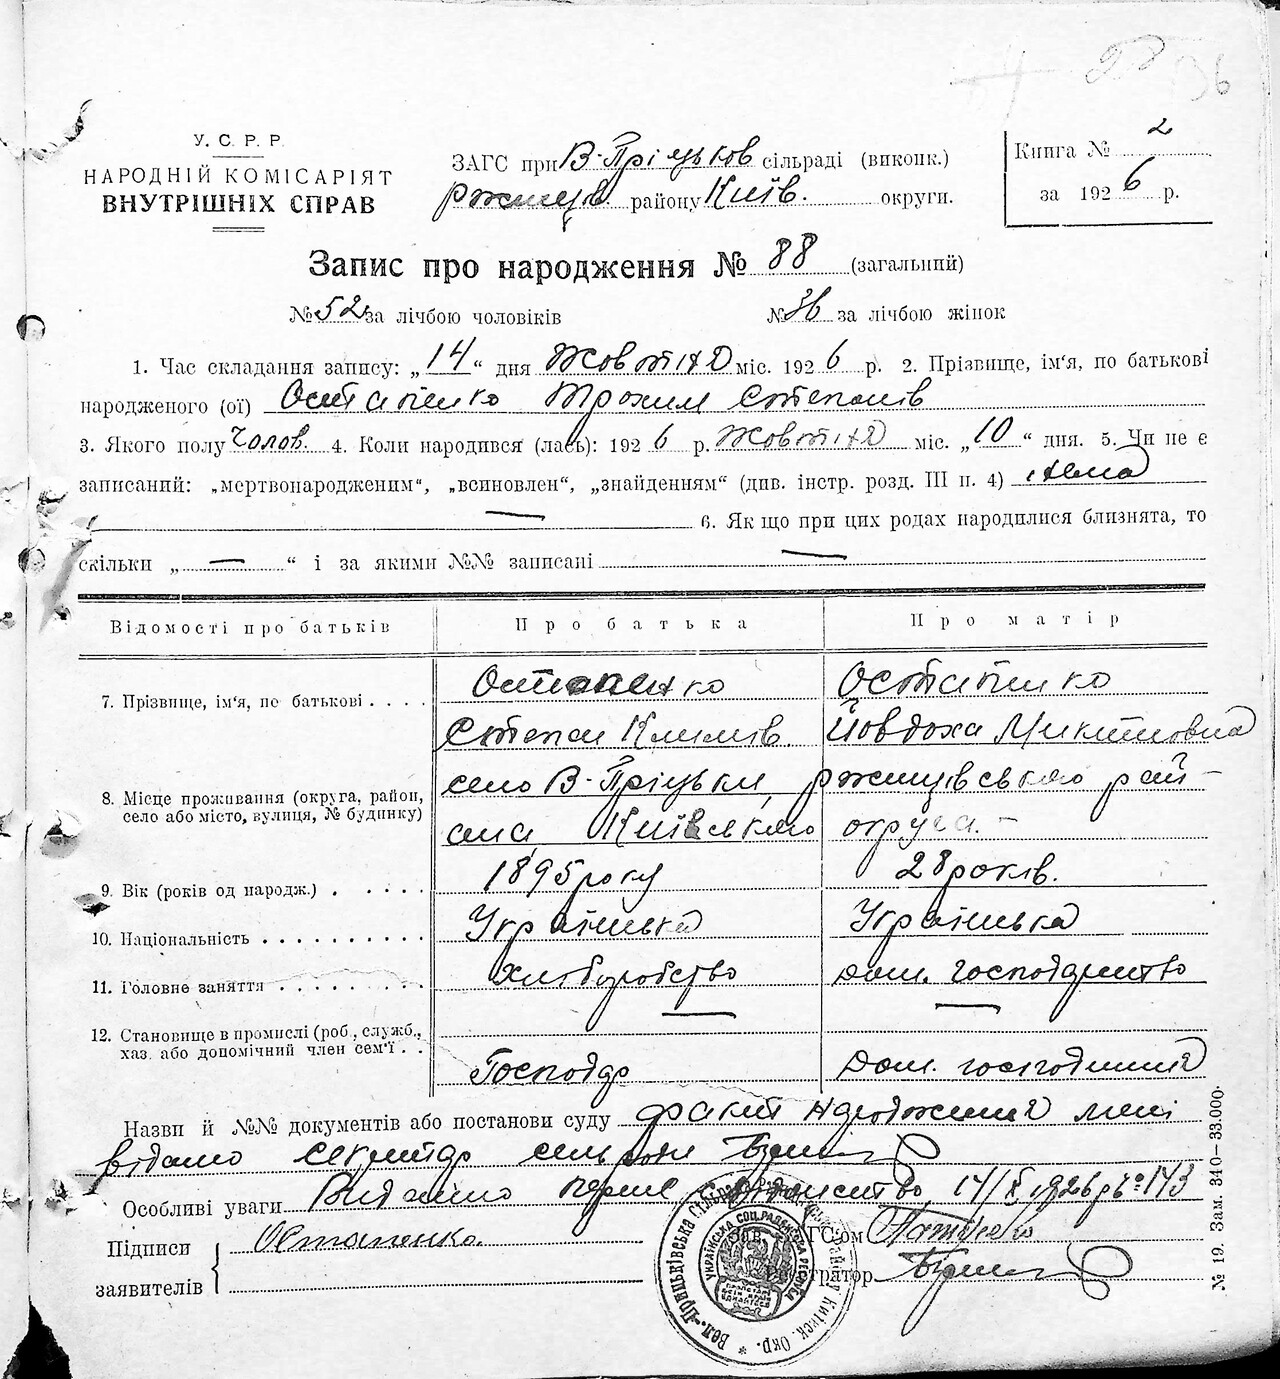 136
У. С. Р. Р.
НАРОДНІЙ КОМІСАРІЯТ
ВНУТРІШНІХ СПРАВ
ЗАГС при В-Пріцьков сільраді (виконк.)
Ржищів району Київ. округи.
Книга № 2
за 1926 р.
Запис про народження № 88 (загальний)
№ 52 за лічбою чоловіків № 36 за лічбою жінок
1. Час складання запису: „14“ дня Жовтня міс. 1926 р. 2. Прізвище, ім'я, по батькові
народженого (ої) Остапенко Трохим Степанів
3. Якого полу Чолов. 4. Коли народився (лась): 1926 р. Жовтня міс. „10“ дня. 5. Чи не є
записаний: „мертвонародженим“, „всиновлен“, „знайденням“ (див. інстр. розд. III п. 4) Нема
— 6. Якщо при цих родах народилися близнята, то
скільки „—“ і за якими №№ записані —
Відомості про батьків Про батька Про матір
7. Прізвище, ім'я, по батькові . . . . Остапенко Остапенко
Степан Климів. Йовдоха Микитовна
8. Місце проживання (округа, район, село або місто, вулиця, № будинку) село В-Пріцьки, Ржищівського рай-
она, Київського округа. –
9. Вік (років од народж.) . . . . . 1895 року 28 років.
10. Національність . . . . . . . . . . Українська Українська
11. Головне заняття . . . . . . . . . Хліборобство Дом. господарство
12. Становище в промислі (роб., служб., — —
хаз. або допомічний член сем'ї . . Господар Дом. господиня
Назви й №№ документів або постанови суду факт народження мені
відомо секретар сельради
Особливі уваги Видано перше свідоцтво 14/X 1926 р № 143
Підписи
заявителів
Остапенко.
Зав. ЗАГС'ом
Реєстратор
Вел.-Прицьківська Сільрада Київск. Окр. *
УКРАЇНСЬКА СОЦ. РАДЯНСЬКА РЕСПУБЛІКА
№ 19. Зам. 340—33.000.